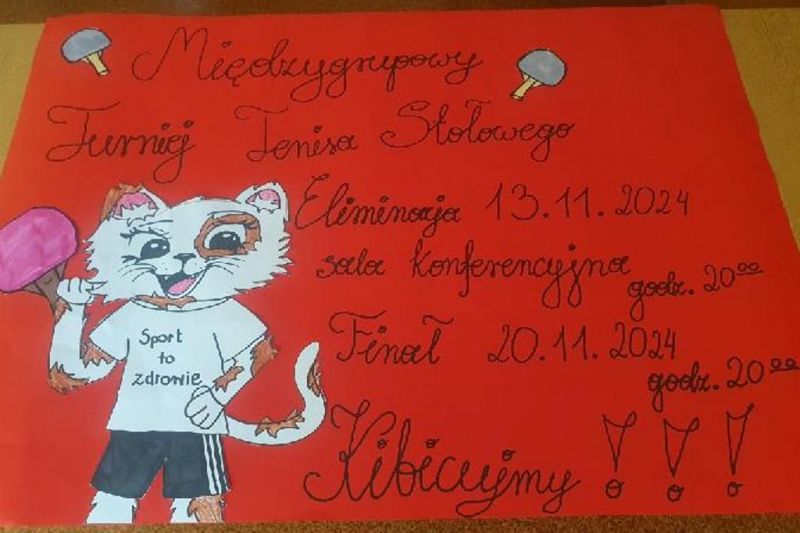 Międzygrupowy
Turniej Tenisa Stołowego
Eliminacja 13.11.2024
sala konferencyjna godz. 20⁰⁰
Finał 20.11.2024
godz. 20⁰⁰
Kibicujmy !!!
Sport
to
zdrowie